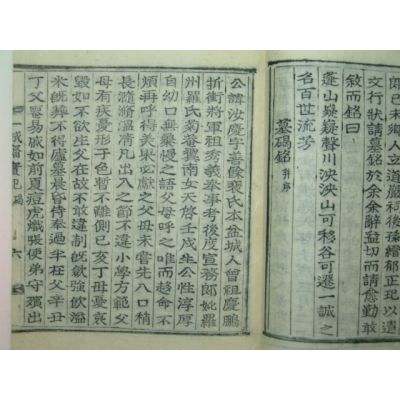 郎已未鄉人立遺祠後孫縉郁正現以遺
文行狀請墓銘於余余辭益切而請愈勤敢
敘而銘曰
蓬山嶷嶷聲川泱泱山可移谷可遷一誠之
名百世流芳
墓碣銘 幷序
公諱汝慶字善餘裵氏本盆城人曾祖慶鵬
折衝將軍祖秀義奉事考後度宣務郎妣羅
州羅氏菊菴嚢南女天啓壬戌生公性淳厚
自幼口無褻慢之語父母呼之唯而趨命不
煩再呼得美果必獻之父母未嘗先入口稍
長滫瀡溫凊凡出入之節不違小學方範父
母有疾憂形于色暫不離側已亥丁母憂哀
毀如不欲生父在故不敢違制飮啖强飮溢
米旣葬不得廬墓晨昏侍奉過半在父辛丑
丁父憂易戚如前夏痘虎熾張便弟守殯出
一誠齋實紀 碣 六